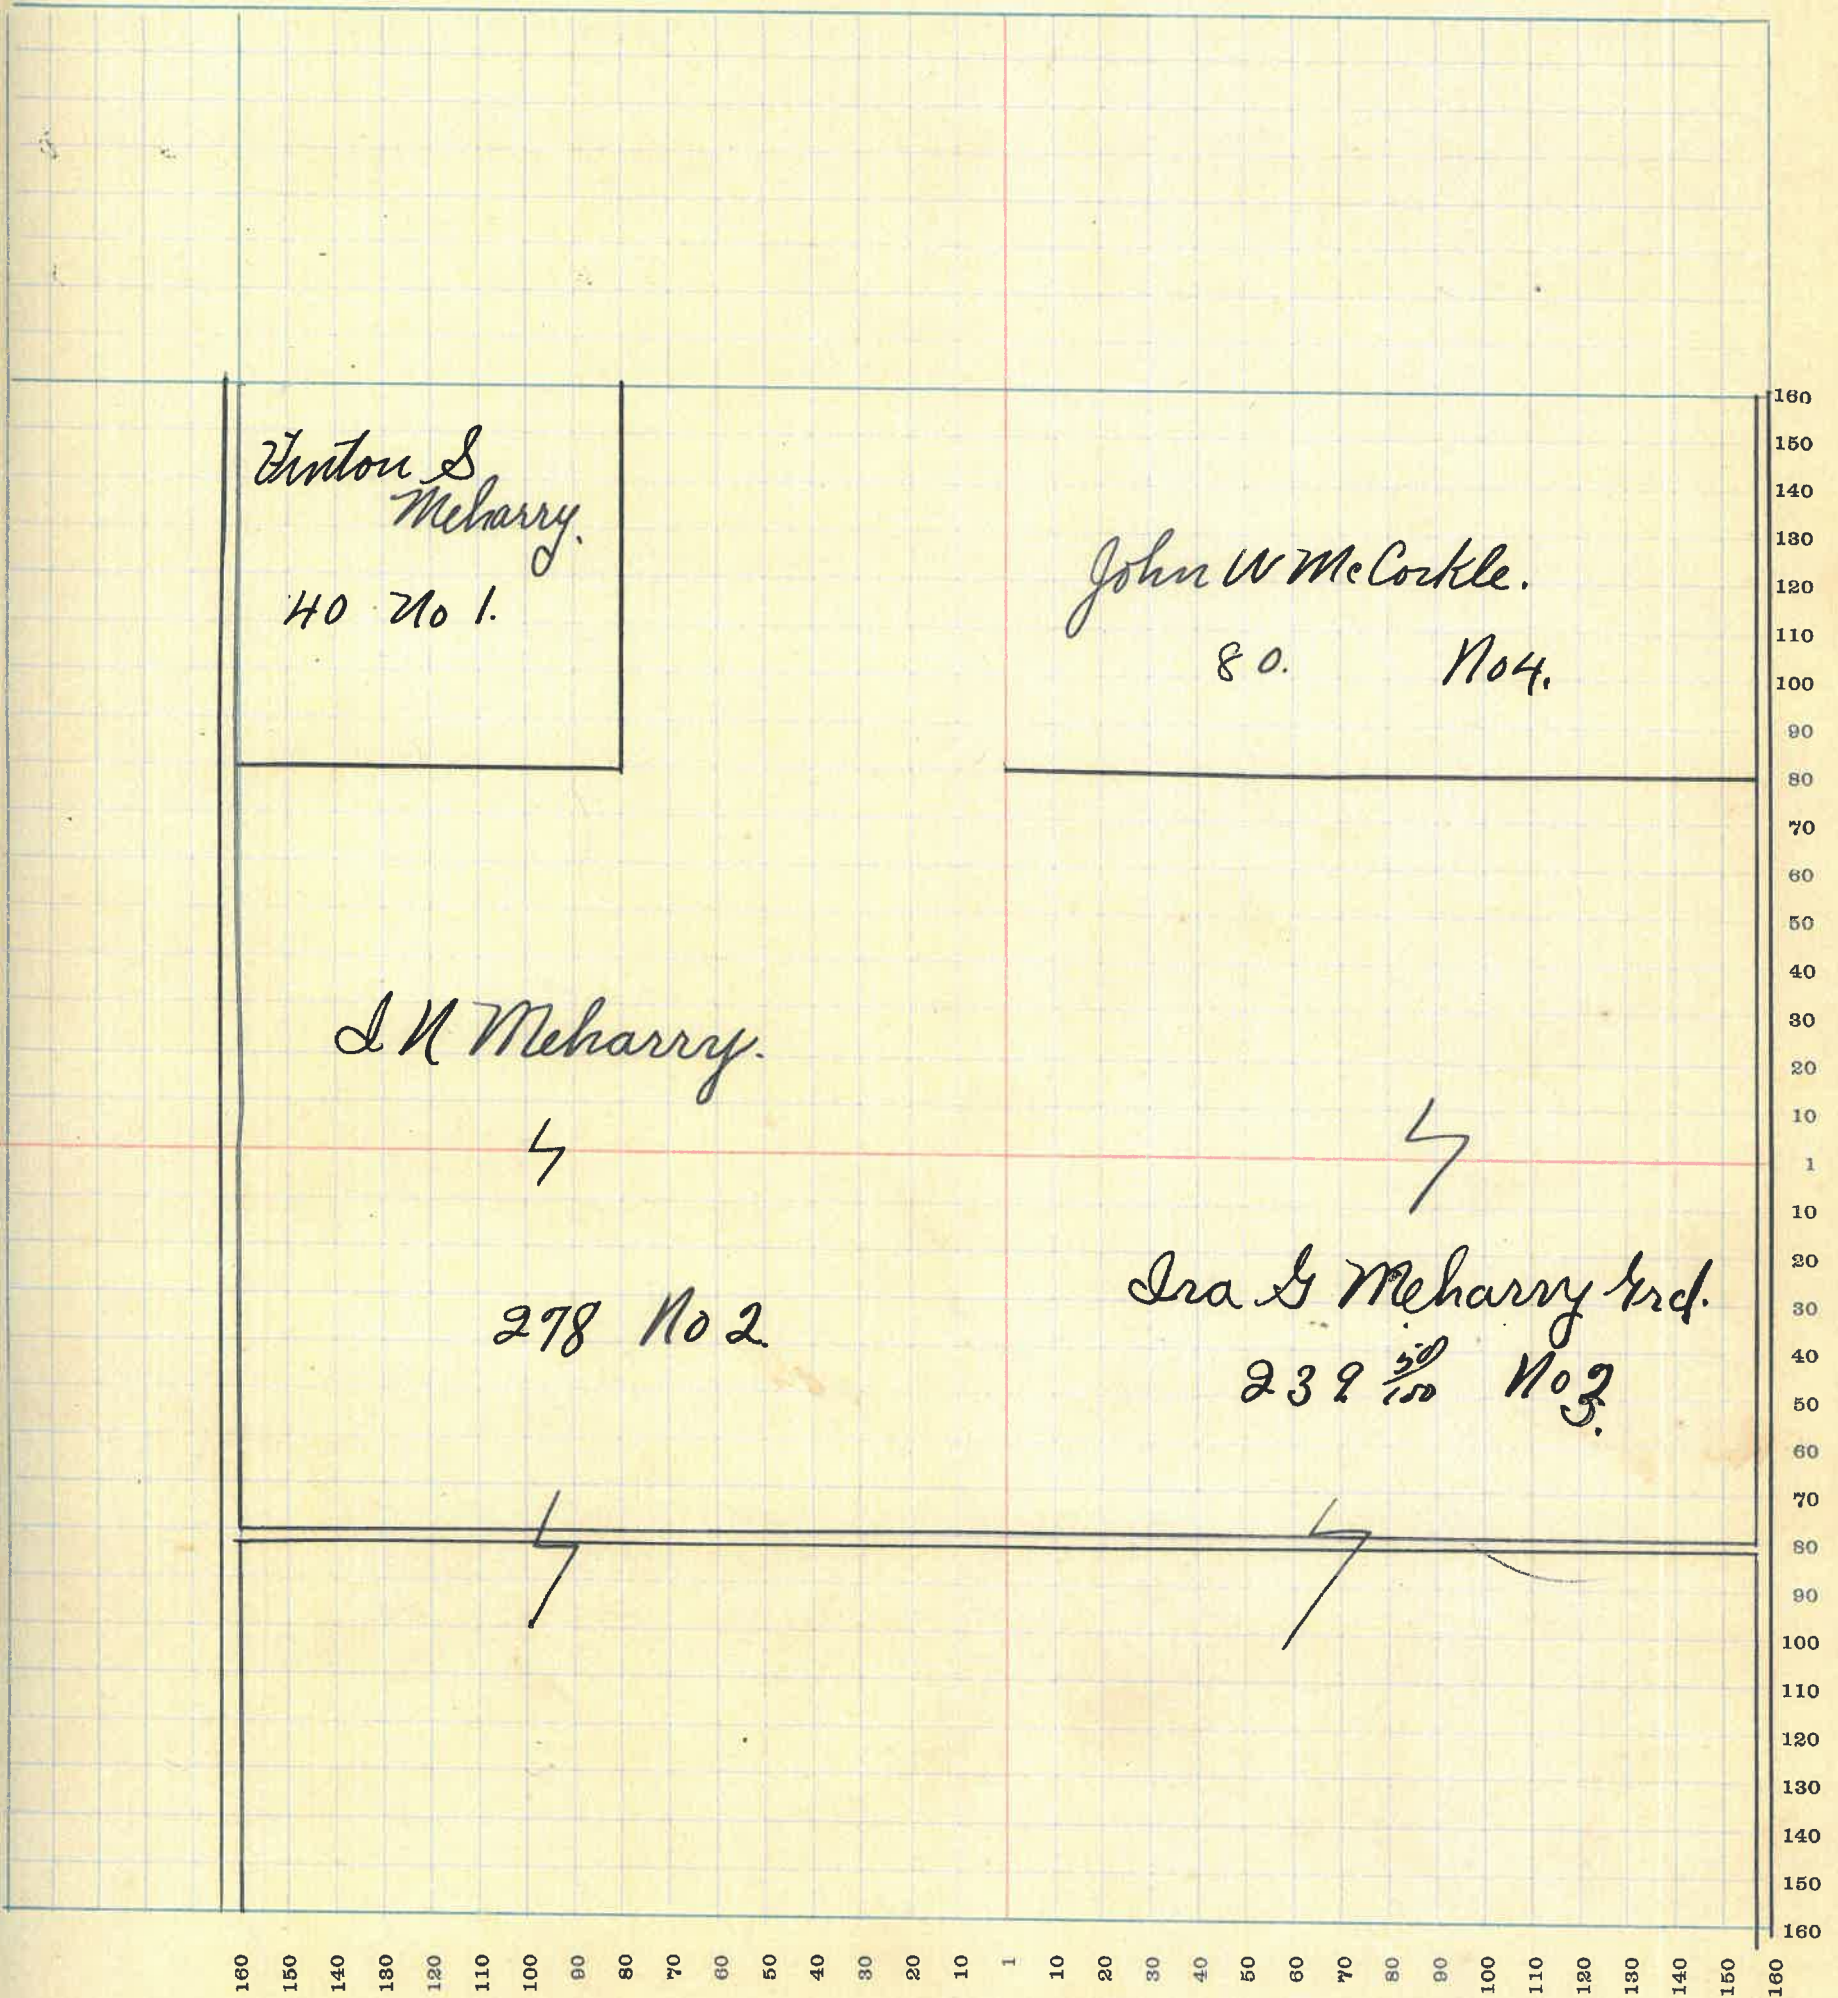 Vinton S
Meharry.
40 No 1.
John W McCorkle.
80. No 4.
I N Meharry.
278 No 2.
Ira G Meharry Grd.
239 50/100 No 3.
160
150
140
130
120
110
100
90
80
70
60
50
40
30
20
10
1
10
20
30
40
50
60
70
80
90
100
110
120
130
140
150
160
160 150 140 130 120 110 100 90 80 70 60 50 40 30 20 10 1 10 20 30 40 50 60 70 80 90 100 110 120 130 140 150 160